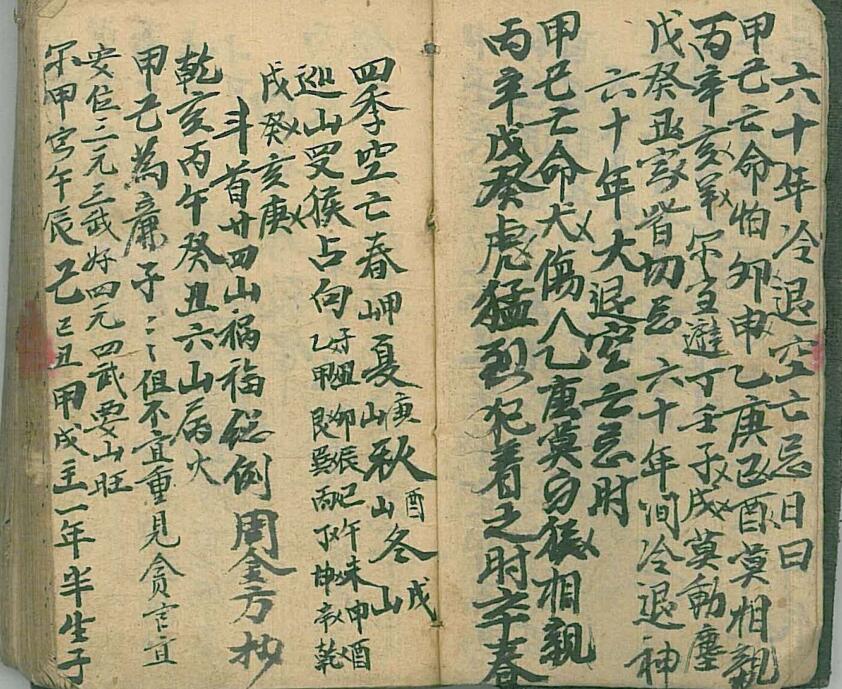 六十年冷退空亡忌日曰
甲己亡命怕卯申乙庚巳酉莫相親
丙辛亥羊宜避丁壬子戌莫動塵
戊癸丑寅皆切忌 六十年間冷退神
六十年大退空亡忌时
甲己亡命犬傷人乙庚莫与猴相親
丙辛戊癸虎猛烈犯着之时卒春
四季空亡春山夏庚山秋酉山冬戌山
巡山罗猴占向乙甲艮巽丙丁坤辛乾
丑卯辰巳午未申酉
戌癸亥庚
斗首廿四山禍福総例 周金方抄
乾亥丙午癸丑六山屬火
甲己為廉子子但不宜重見貪官宜
安位三元三武好四元四武要山旺
不甲寅午辰己巳丑甲戌主一年半生子